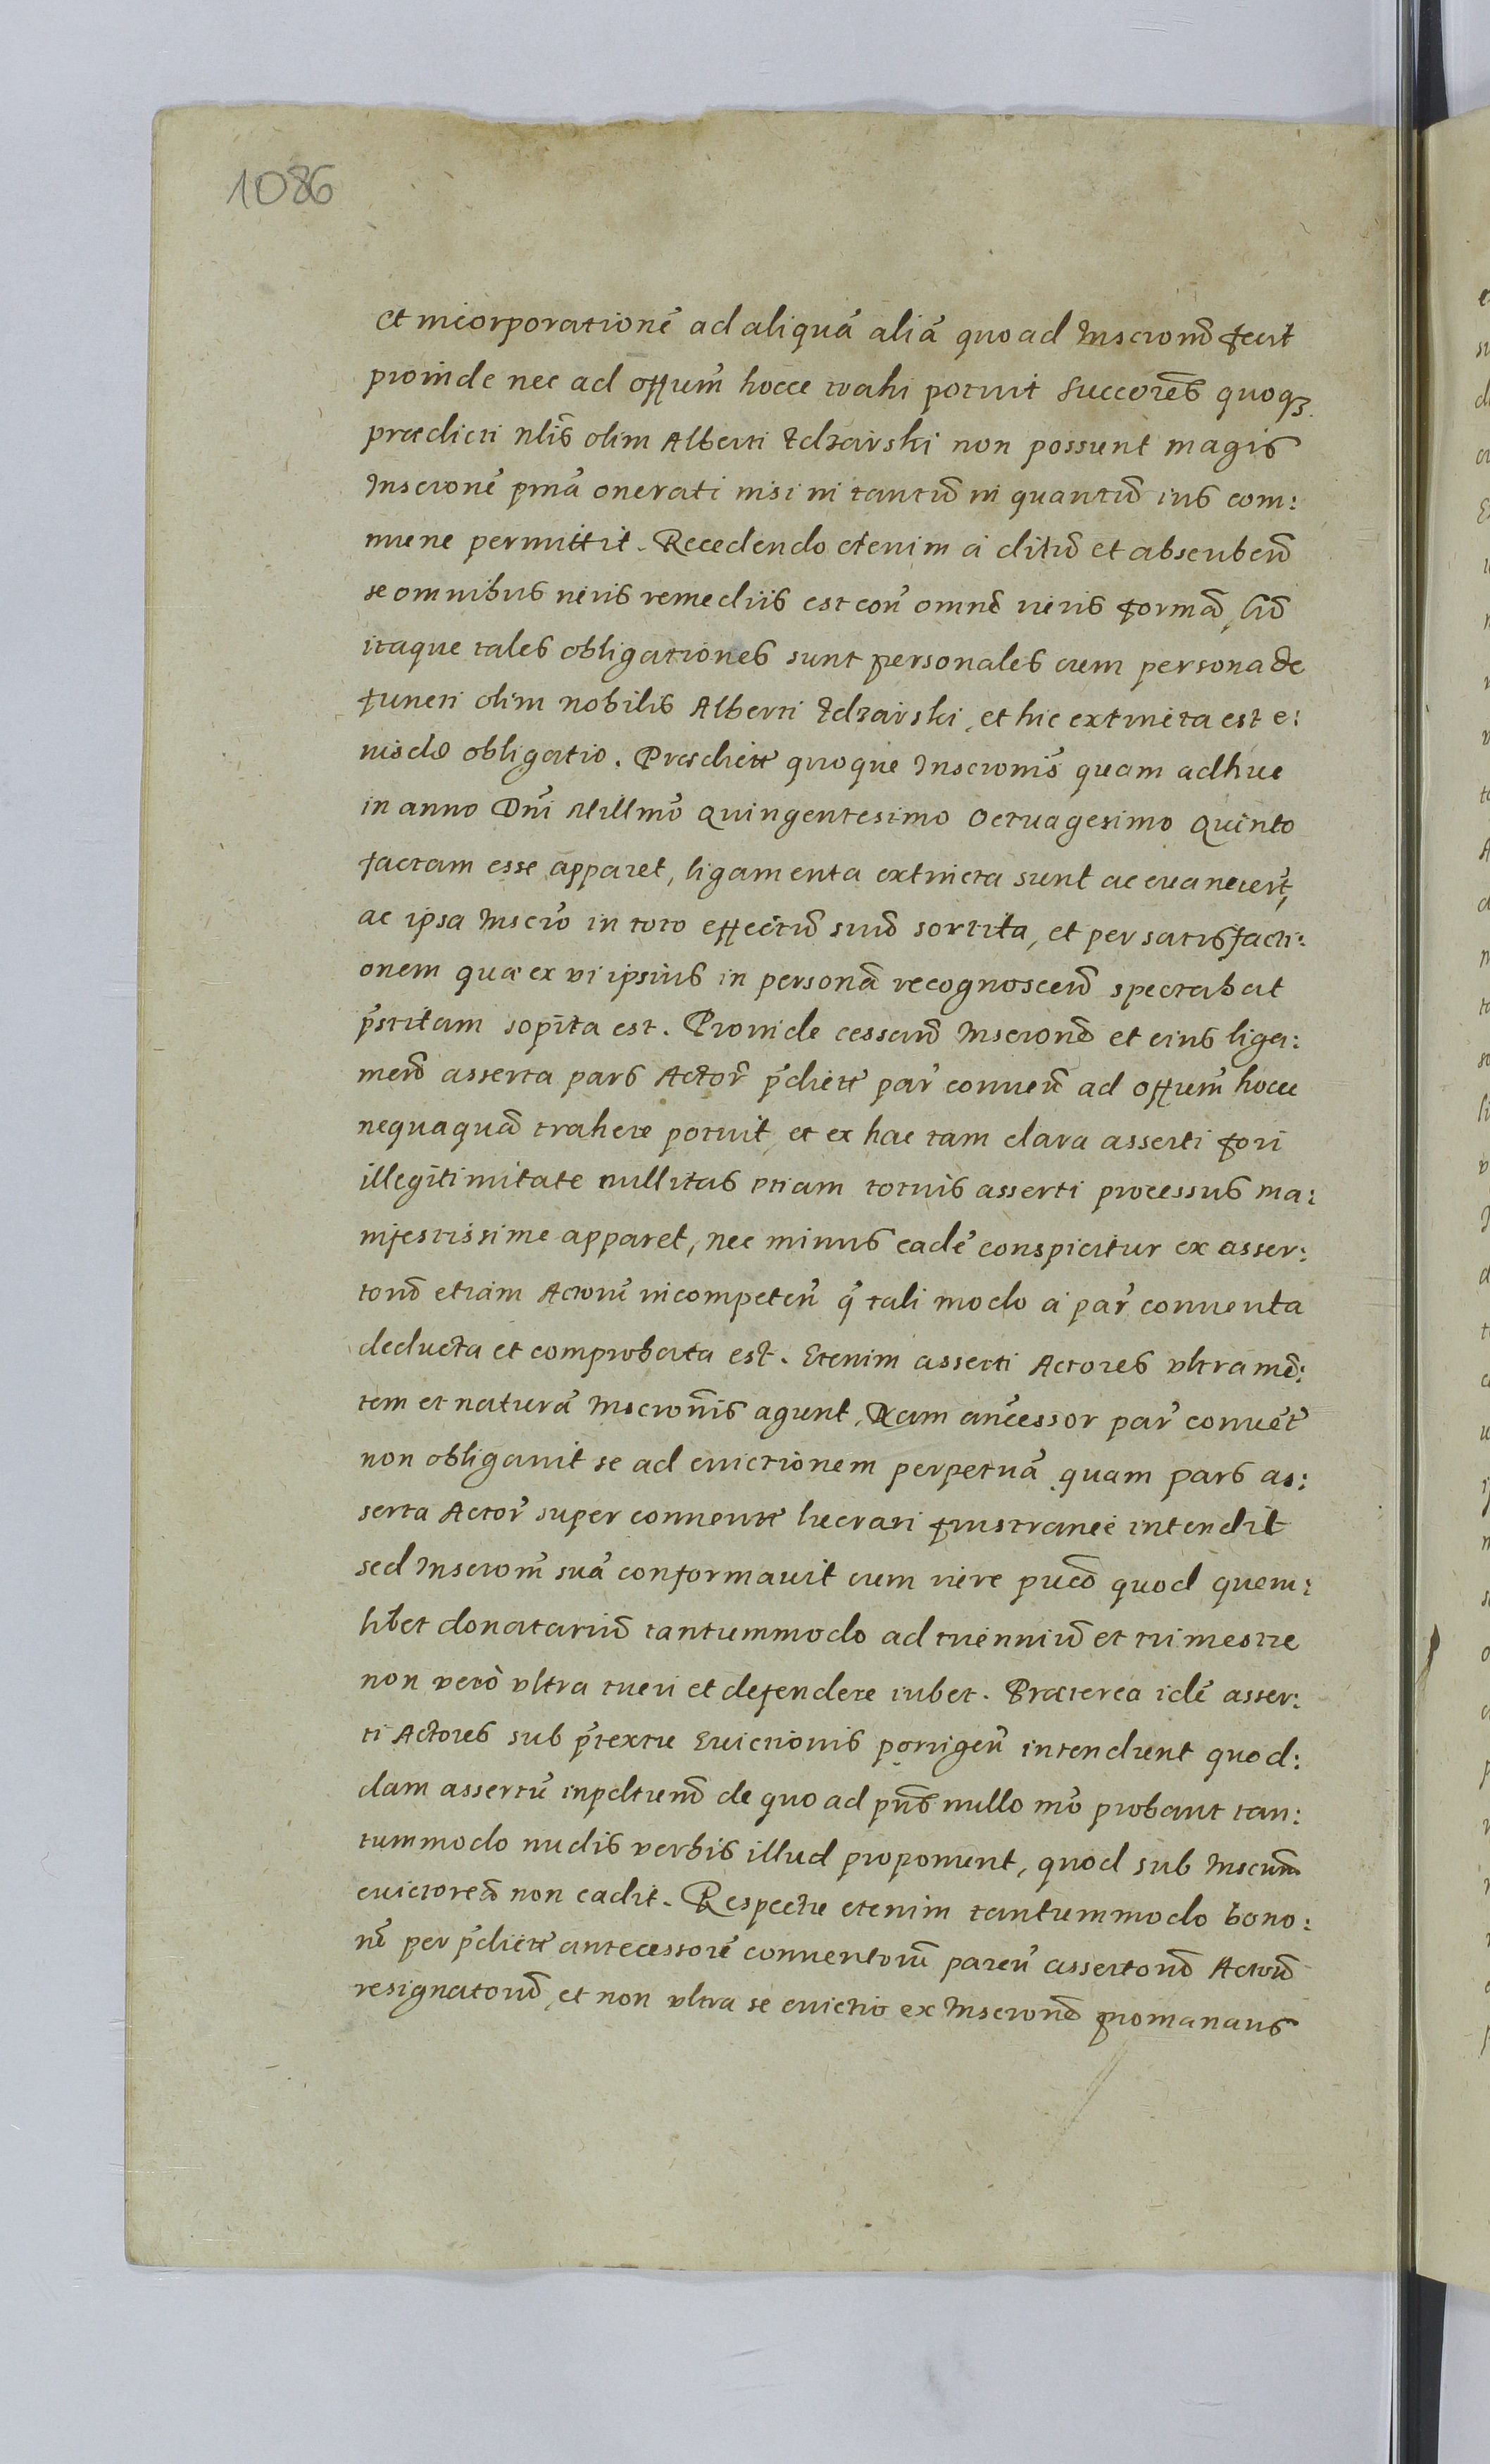 1086
et incorporationē ad aliquā aliā quoad Inscrionē fecit
proinde nec ad offium hocce trahi potuit Succores quoqȝ
prædicti nlis olim Alberti Zdzarski non possunt magis
Inscrionē pmā onerati nisi in tantū in quantū ius com:
mune permittit. Recedendo etenim a ditū et abscubeñ
se omnibus iuris remediis est con͂ omnē iuris formā, Cū
itaque tales obligationes sunt personales cum persona de
functi olim nobilis Alberti Zdzarski, et hic extincta est e:
iusdē obligatio. Prædictæ quoque Inscrionis quam adhuc
in anno Dni Millmo Quingentesimo Octuagesimo Quinto
factam esse apparet, ligamenta extincta sunt ac euanuert,
ac ipsa Inscrio in toto effectū suū sortita, et per satisfacti:
onem quæ ex vi ipsius in personā recognosceñ spectabat
pstitam sopita est. Proinde cessañ Inscrionē et eius liga:
meñ asserta pars Actor̃ pdictæ par̃ conueñ ad offium hocce
nequaquā trahere potuit, et ex hac tam clara asserti fori
illegitimitate nullitas etiam totius asserti processus ma:
nifestissime apparet, nec minus eadē conspicitur ex asser:
torū etiam Actorū incompeteñ q̃ tali modo a par̃ conuenta
deducta et comprobata est. Etenim asserti Actores vltra mē:
tem et naturā Inscrionis agunt, Nam ancessor par̃ conuet
non obligauit se ad euictionem perpetuā quam pars as:
serta Actor̃ super conuentæ lucrari frustranee intendit
sed Inscrionē suā conformauit cum iure puco quod quem:
libet donatariū tantummodo ad triennium et trimestre
non verò vltra tueri et defendere iubet. Præterea idē asser:
ti Actores sub p̃textu Euictionis porrigeñ intendunt quod:
dam assertū inpdtiend de quo ad pns nullo mō probant tan:
tummodo nudis verbis illud proponunt, quod sub Inscrnm
euictoreā non cadit. Respectu etenim tantummodo bono:
rū per pdictæ antecessorē conuentorū pareñ assertorū Actorū
resignatorū, et non vltra se euictio ex Inscrionē promanans